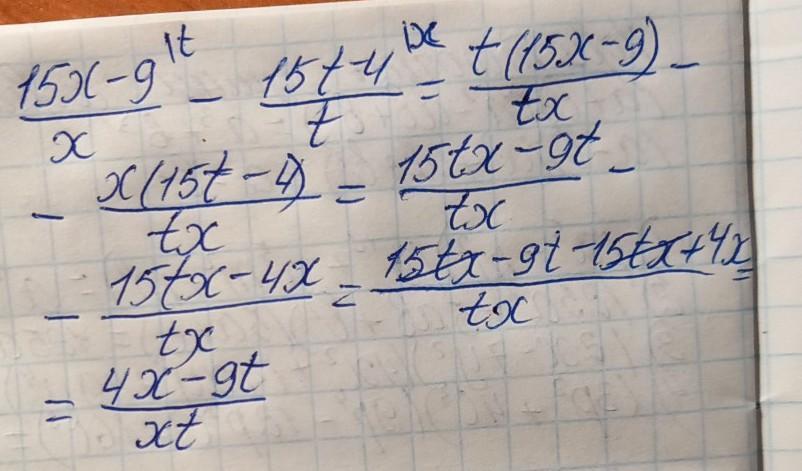 (15x-9)/x |t - (15t-4)/t |x = t(15x-9)/tx -
- x(15t-4)/tx = (15tx-9t)/tx -
- (15tx-4x)/tx = (15tx-9t-15tx+4x)/tx =
= (4x-9t)/xt